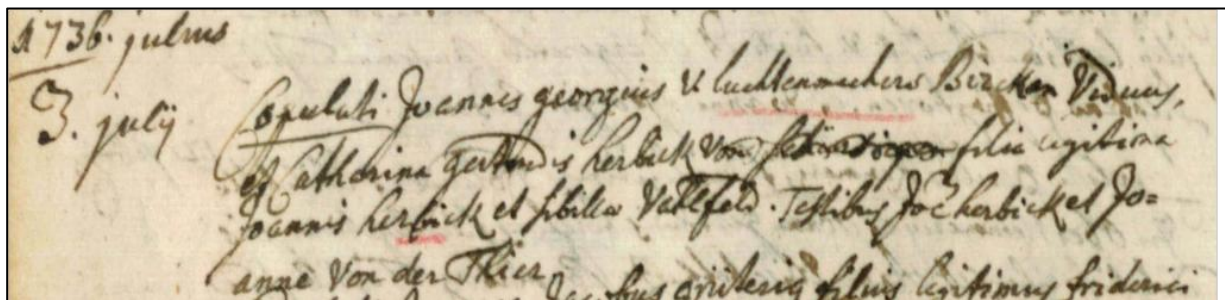 1736. julius
3. julij Copulati Joannes georgius luchtenmachers Bircken Viduus,
et Catharina gertrudis herbick von filia legitima
Joannis herbick et sibilla Vahlfeld. Testibus Joë herbick et Jo=
anne Von der Thier
filius legitimus friderici